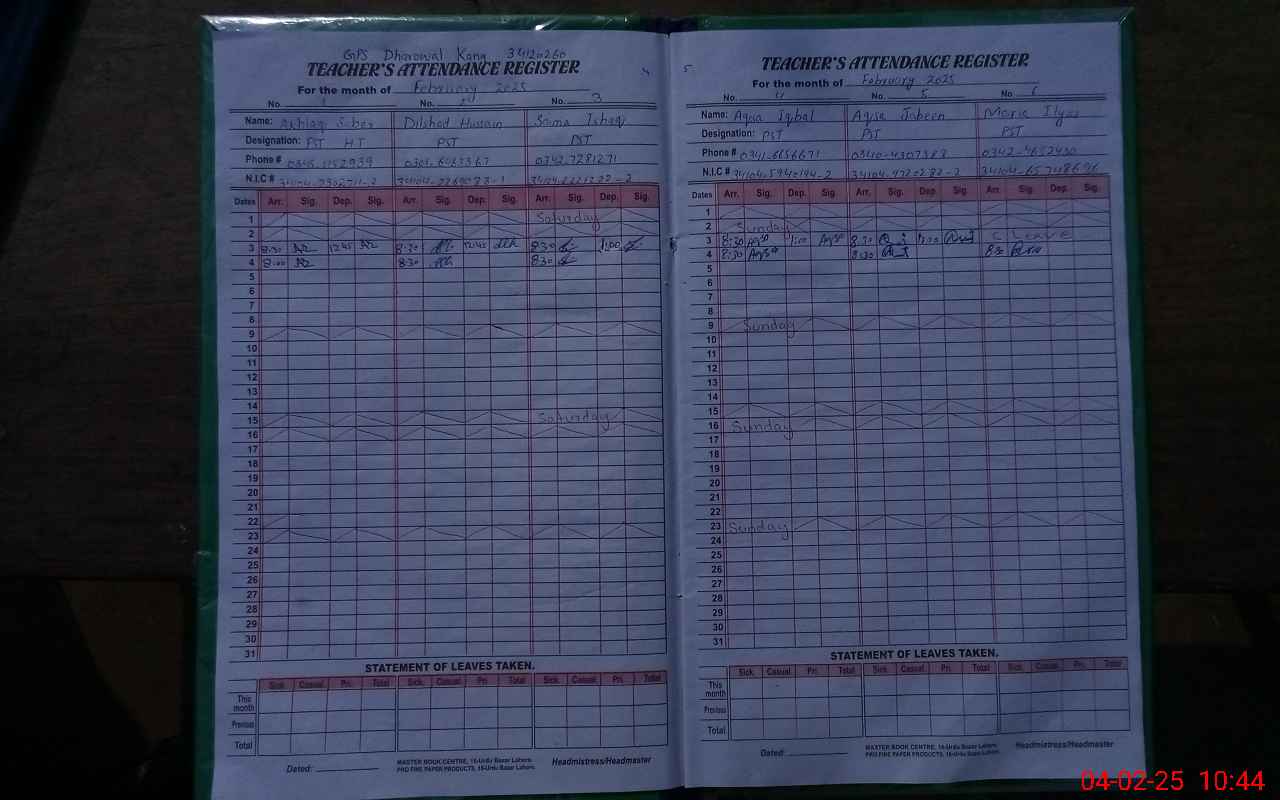 GPS Dharowal Kang 34120260
TEACHER'S ATTENDANCE REGISTER
For the month of February 2025
No. 1 No. 2 No. 3
Name: Akhlaq Saber Dilshad Hussain Saima Ishaq
Designation: PST H.T PST PST
Phone # 0342.7281271
N.I.C #
Dates Arr. Sig. Dep. Sig. Arr. Sig. Dep. Sig. Arr. Sig. Dep. Sig.
1 Saturday
2
3 8:30 12:45 8:30 12:45 8:30 1:00
4 8:00 8:30 8:30
5
6
7
8
9
10
11
12
13
14
15 Saturday
16
17
18
19
20
21
22
23
24
25
26
27
28
29
30
31
STATEMENT OF LEAVES TAKEN.
Sick Casual Pri. Total Sick. Casual Pri. Total Sick. Casual Pri. Total
This month
Previous
Total
Dated:
MASTER BOOK CENTRE, 16-Urdu Bazar Lahore.
PRO FINE PAPER PRODUCTS, 16-Urdu Bazar Lahore.
Headmistress/Headmaster
4
5
TEACHER'S ATTENDANCE REGISTER
For the month of February 2025
No. 4 No. 5 No. 6
Name: Aqsa Iqbal Aqsa Jabeen Maria Ilyas
Designation: PST PST PST
Phone # 0341-6656671 0340-4307388 0342-4652430
N.I.C #
Dates Arr. Sig. Dep. Sig. Arr. Sig. Dep. Sig. Arr. Sig. Dep. Sig.
1
2 Sunday
3 8:30 Aqsa 1:00 Aqsa 8:30 1:00 C Leave
4 8:30 Aqsa 8:30 8:30
5
6
7
8
9 Sunday
10
11
12
13
14
15
16 Sunday
17
18
19
20
21
22
23 Sunday
24
25
26
27
28
29
30
31
STATEMENT OF LEAVES TAKEN.
Sick. Casual Pri. Total Sick. Casual Pri. Total Sick. Casual Pri. Total
This month
Previous
Total
Dated:
MASTER BOOK CENTRE, 16-Urdu Bazar Lahore.
PRO FINE PAPER PRODUCTS, 16-Urdu Bazar Lahore.
Headmistress/Headmaster
04-02-25 10:44